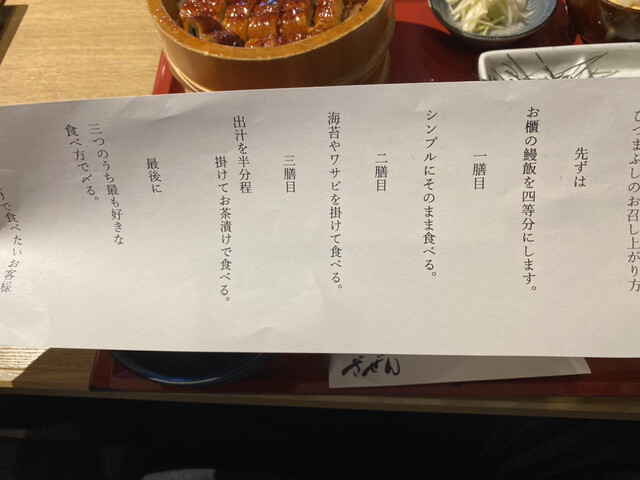 ひつまぶしのお召し上がり方
先ずは
お櫃の鰻飯を四等分にします。
一膳目
シンプルにそのまま食べる。
二膳目
海苔やワサビを掛けて食べる。
三膳目
出汁を半分程
掛けてお茶漬けで食べる。
最後に
三つのうち最も好きな
食べ方で〆る。
で食べたいお客様